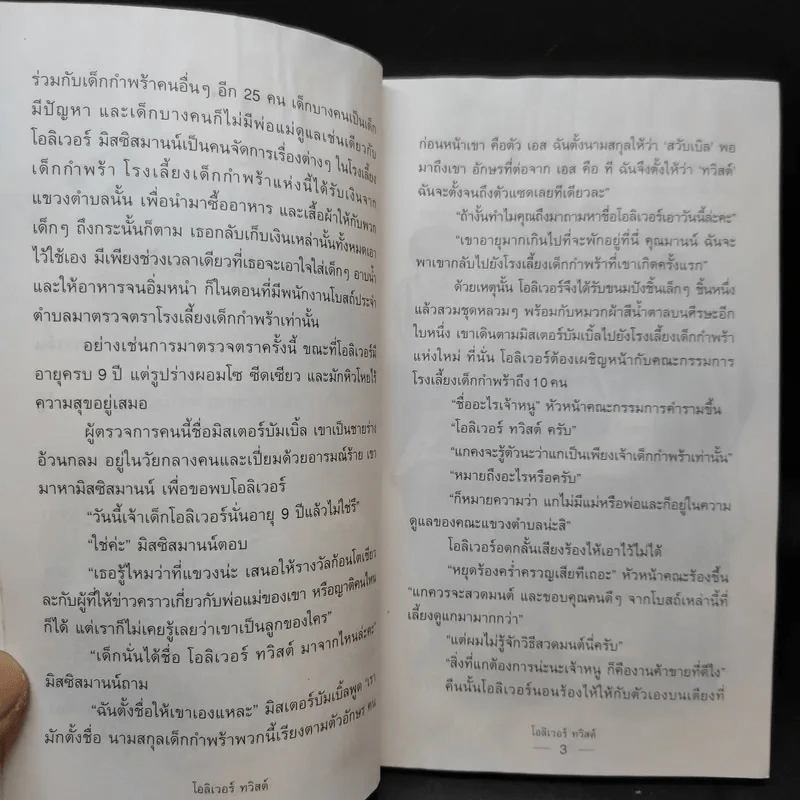 ร่วมกับเด็กกำพร้าคนอื่นๆ อีก 25 คน เด็กบางคนเป็นเด็ก
มีปัญหา และเด็กบางคนก็ไม่มีพ่อแม่ดูแลเช่นเดียวกับ
โอลิเวอร์ มิสซิสมานน์เป็นคนจัดการเรื่องต่างๆ ในโรงเลี้ยง
เด็กกำพร้า โรงเลี้ยงเด็กกำพร้าแห่งนี้ได้รับเงินจาก
แขวงตำบลนั้น เพื่อนำมาซื้ออาหาร และเสื้อผ้าให้กับพวก
เด็กๆ ถึงกระนั้นก็ตาม เธอกลับเก็บเงินเหล่านั้นทั้งหมดเอา
ไว้ใช้เอง มีเพียงช่วงเวลาเดียวที่เธอจะเอาใจใส่เด็กๆ อาบน้ำ
และให้อาหารจนอิ่มหนำ ก็ในตอนที่มีพนักงานโบสถ์ประจำ
ตำบลมาตรวจตราโรงเลี้ยงเด็กกำพร้าเท่านั้น
อย่างเช่นการมาตรวจตราครั้งนี้ ขณะที่โอลิเวอร์มี
อายุครบ 9 ปี แต่รูปร่างผอมโซ ซีดเซียว และมักหิวโหยไร้
ความสุขอยู่เสมอ
ผู้ตรวจการคนนี้ชื่อมิสเตอร์บัมเบิ้ล เขาเป็นชายร่าง
อ้วนกลม อยู่ในวัยกลางคนและเปี่ยมด้วยอารมณ์ร้าย เขา
มาหามิสซิสมานน์ เพื่อขอพบโอลิเวอร์
“วันนี้เจ้าเด็กโอลิเวอร์นั่นอายุ 9 ปีแล้วไม่ใช่รึ”
“ใช่ค่ะ” มิสซิสมานน์ตอบ
“เธอรู้ไหมว่าที่แขวงน่ะ เสนอให้รางวัลก้อนโตเชียว
ละกับผู้ที่ให้ข่าวคราวเกี่ยวกับพ่อแม่ของเขา หรือญาติคนไหน
ก็ได้ แต่เราก็ไม่เคยรู้เลยว่าเขาเป็นลูกของใคร”
“เด็กนั่นได้ชื่อ โอลิเวอร์ ทวิสต์ มาจากไหนล่ะคะ”
มิสซิสมานน์ถาม
“ฉันตั้งชื่อให้เขาเองแหละ” มิสเตอร์บัมเบิ้ลพูด “เรา
มักตั้งชื่อ นามสกุลเด็กกำพร้าพวกนี้เรียงตามตัวอักษร คน
โอลิเวอร์ ทวิสต์
ก่อนหน้าเขา คือตัว เอส ฉันตั้งนามสกุลให้ว่า ‘สวับเบิล’ พอ
มาถึงเขา อักษรที่ต่อจาก เอส คือ ที ฉันจึงตั้งให้ว่า ‘ทวิสต์’
ฉันจะตั้งจนถึงตัวแซดเลยทีเดียวละ”
“ถ้างั้นทำไมคุณถึงมาถามหาชื่อโอลิเวอร์เอาวันนี้ล่ะคะ”
“เขาอายุมากเกินไปที่จะพักอยู่ที่นี่ คุณมานน์ ฉันจะ
พาเขากลับไปยังโรงเลี้ยงเด็กกำพร้าที่เขาเกิดครั้งแรก”
ด้วยเหตุนั้น โอลิเวอร์จึงได้รับขนมปังชิ้นเล็กๆ ชิ้นหนึ่ง
แล้วสวมชุดหลวมๆ พร้อมกับหมวกผ้าสีน้ำตาลบนศีรษะอีก
ใบหนึ่ง เขาเดินตามมิสเตอร์บัมเบิ้ลไปยังโรงเลี้ยงเด็กกำพร้า
แห่งใหม่ ที่นั่น โอลิเวอร์ต้องเผชิญหน้ากับคณะกรรมการ
โรงเลี้ยงเด็กกำพร้าถึง 10 คน
“ชื่ออะไรเจ้าหนู” หัวหน้าคณะกรรมการคำรามขึ้น
“โอลิเวอร์ ทวิสต์ ครับ”
“แกคงจะรู้ตัวนะว่าแกเป็นเพียงเจ้าเด็กกำพร้าเท่านั้น”
“หมายถึงอะไรหรือครับ”
“ก็หมายความว่า แกไม่มีแม่หรือพ่อและก็อยู่ในความ
ดูแลของคณะแขวงตำบลน่ะสิ”
โอลิเวอร์อดกลั้นเสียงร้องไห้เอาไว้ไม่ได้
“หยุดร้องคร่ำครวญเสียทีเถอะ” หัวหน้าคณะร้องขึ้น
“แกควรจะสวดมนต์ และขอบคุณคนดีๆ จากโบสถ์เหล่านี้ที่
เลี้ยงดูแกมามากกว่า”
“แต่ผมไม่รู้จักวิธีสวดมนต์นี่ครับ”
“สิ่งที่แกต้องการน่ะนะเจ้าหนู ก็คืองานค้าขายที่ดีไง”
คืนนั้นโอลิเวอร์นอนร้องไห้ให้กับตัวเองบนเตียงที่
โอลิเวอร์ ทวิสต์
3